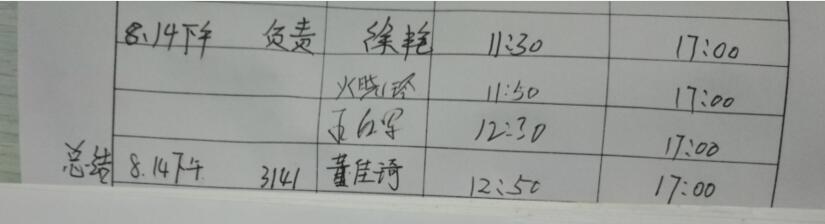 8.14下午 负责 徐艳 11:30 17:00
火晓玲 11:50 17:00
12:30 17:00
总结 8.14下午 3141 董佳琦 12:50 17:00